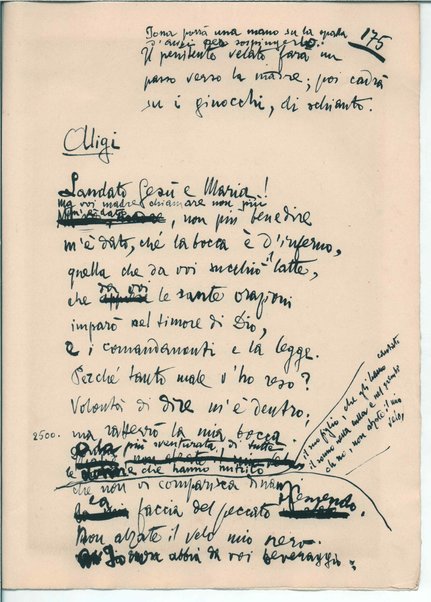 Iona porrà una mano su la spalla
d'Aligi per sospingerlo.
175
Il penitente velato farà un
passo verso la madre; poi cadrà
su i ginocchi, di schianto.
Aligi
Laudato Gesù e Maria!
ma voi madre chiamare non più
m'è dato, non più benedire
m'è dato, ché la bocca è d'inferno,
quella che da voi succhiò il latte,
che da voi le sante orazioni
imparò nel timore di Dio,
e i comandamenti e la legge.
Perché tanto male v'ho reso?
Volontà di dire m'è dentro;
2500.
ma ratterrò la mia bocca.
più sventurata di tutte
le che hanno nutrito
il suo figlio, che gli hanno cantato
il sonno nella culla e nel grembo
oh no, non alzate il mio
velo,
che non vi comparisca dinanzi
faccia del peccato tremendo.
Non alzate il velo mio nero.
Io non abbia da voi beveraggio: